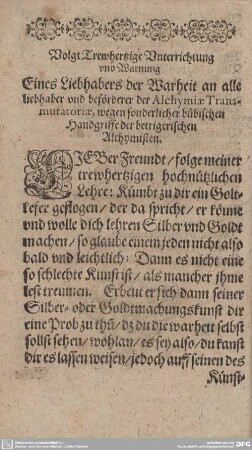 Volgt Trewhertzige Vnterrichtung
vnd Warnung
Eines Liebhabers der Warheit an alle
liebhaber vnd beförderer der Alchymiæ Trans-
mutatoriæ, wegen sonderlicher bübischen
Handgriffe der betrigerischen
Alchymisten.
LIEBer Freundt / folge meiner
trewhertzigen hochnützlichen
Lehre: Kümbt zu dir ein Golt-
kefer geflogen / der da spricht / er könne
vnd wolle dich lehren Silber vnd Goldt
machen / so glaube einem jeden nicht also
bald vnd leichtlich: Dann es nicht eine
so schlechte Kunst ist / als mancher jhme
lest treumen. Erbeut er sich dann seiner
Silber- oder Goldtmachungskunst dir
eine Prob zu thū / dz du die warheit selbst
sollst sehen / wohlan / es sey also / du kanst
dir es lassen weisen / jedoch auff seinen des
Künst-
DFG